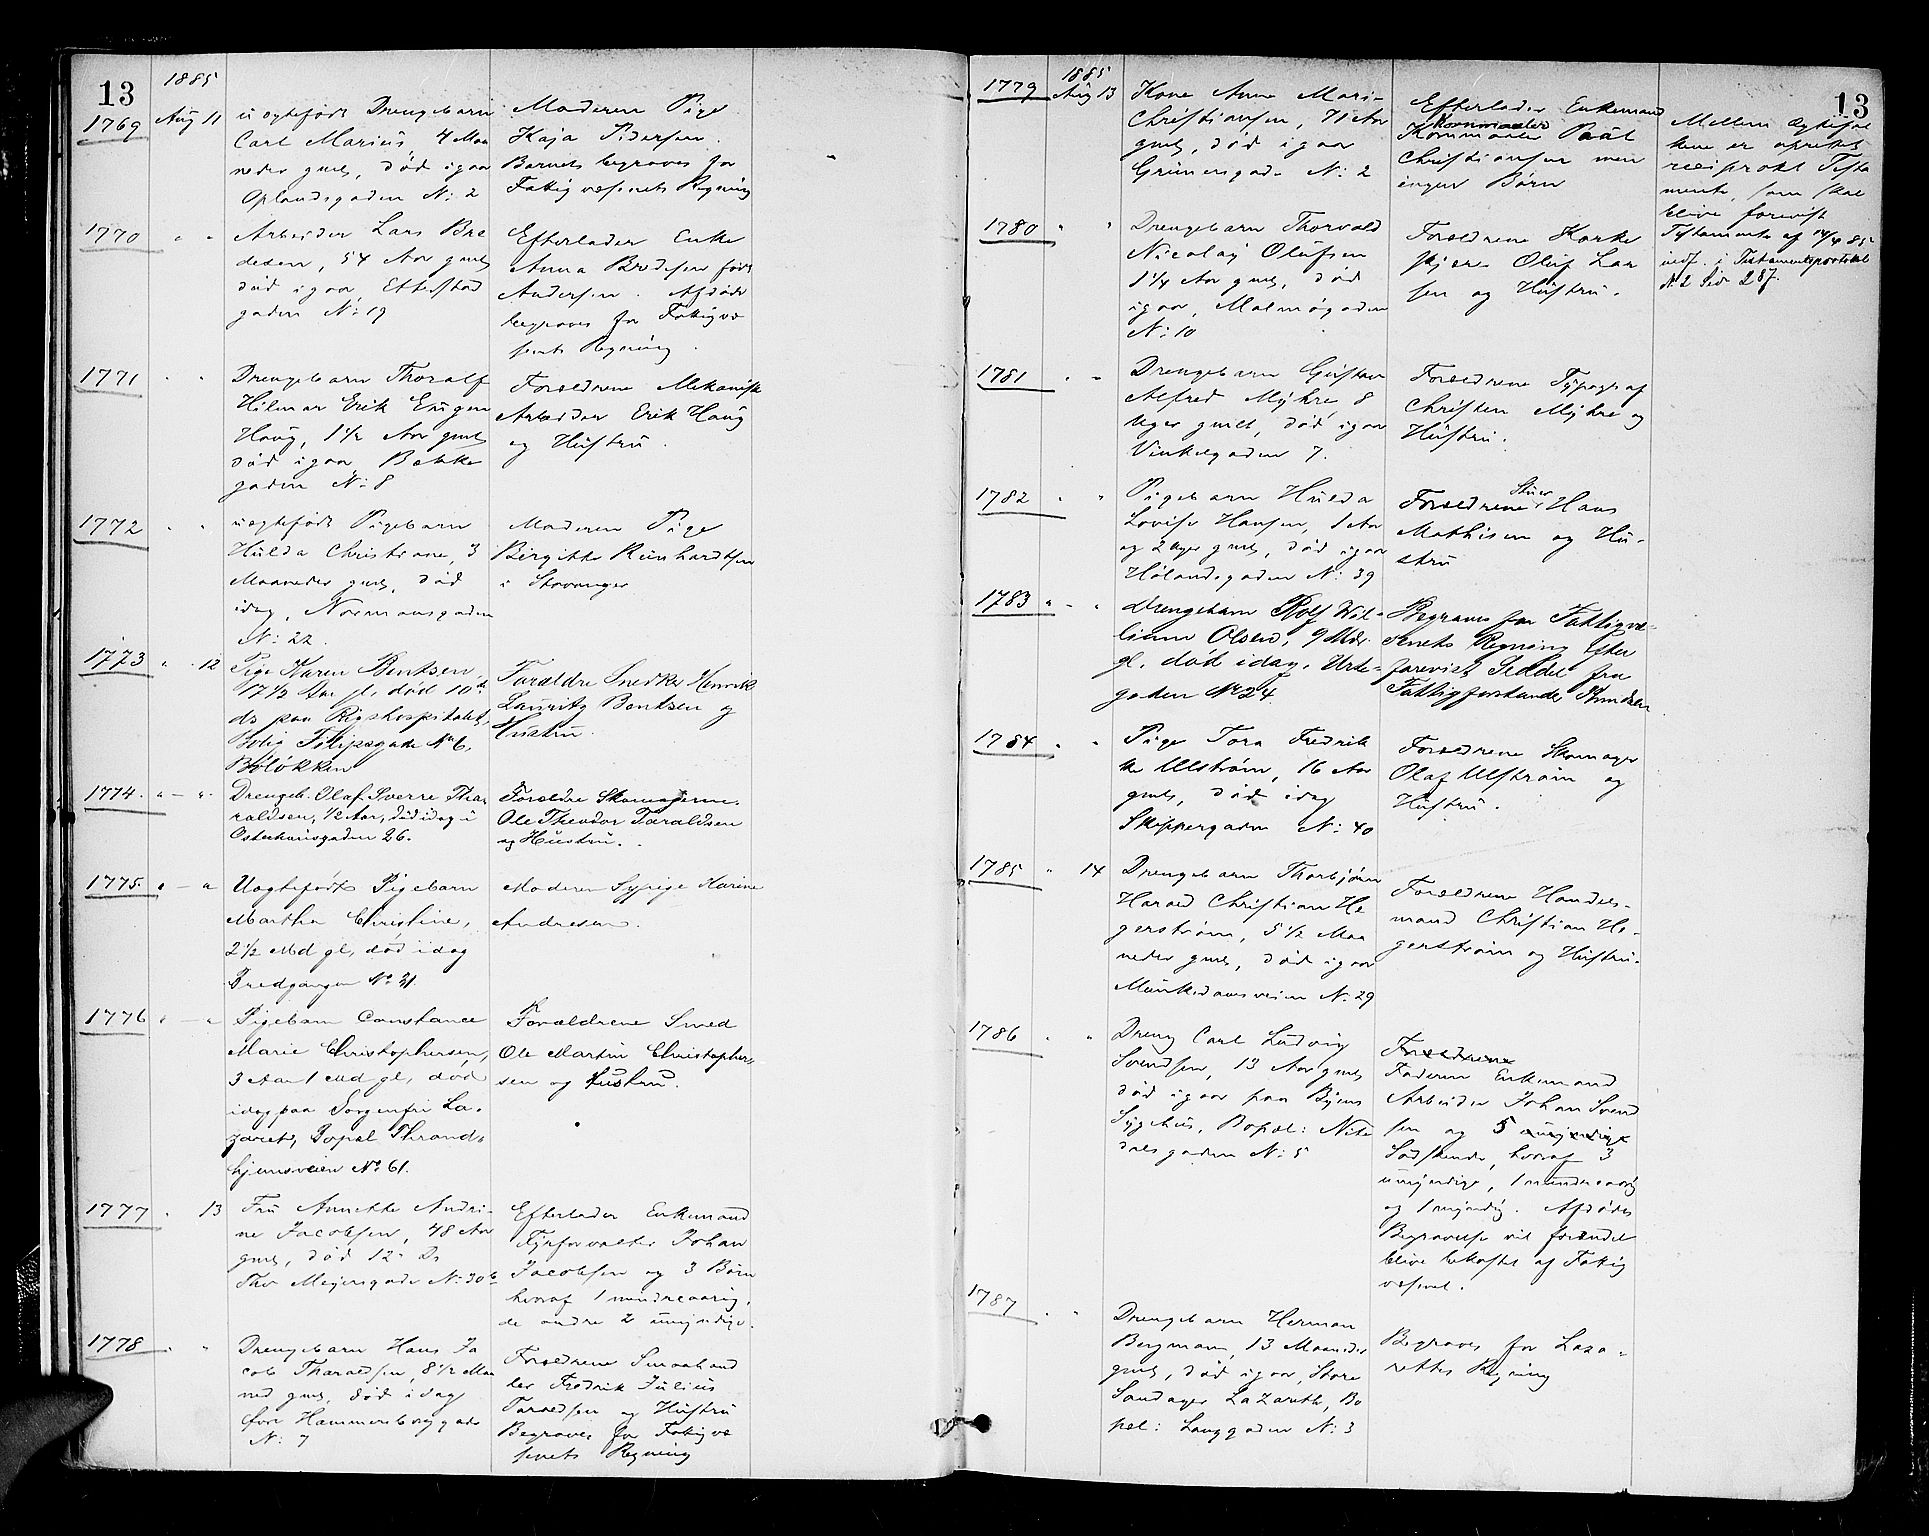 13
1885
1769 Aug 11 uægtefødt Drengebarn
Carl Marius, 4 Maa
neder gml, død igaar
Oplandsgaden N: 2
Moderen Pige
Kaja Pedersen.
Barnets begraves for
Fattigvæsenets Regning
1770 " " Arbeider Lars Bre
desen, 54 Aar gml,
død igaar, Ettestad
gaden N: 19
Efterlader Enke
Anna Bredesen født
Andersen. Afdøde
begraves for Fattigvæ
senets Regning.
1771 " " Drengebarn Thoralf
Hilmar Erik Eugen
Haug, 1 1/2 Aar gml,
død igaar, Bakke
gaden N: 8
Forældrene Mekanisk
Arbeider Erik Haug
og Hustru.
1772 " " uægtefødt Pigebarn
Hulda Christiane, 3
Maaneder gml, død
idag, Normansgaden
N: 22.
Moderen Pige
Birgitte Reinhardtsen
i Stavanger
1773 " 12 Pige Karen Bentsen,
17 1/2 Aar gl. død 10de
ds paa Rigshospitalet,
Bolig Filipsgade No 6,
Bøløkken
Forældre Snedker Henrik
Lauritz Bentsen og
Hustru.
1774. " — " Drengeb. Olaf Sverre Tha
raldsen, 1/2 Aar, død idag i
Osterhausgaden 26.
Forældre Skomagerne.
Ole Theodor Taraldsen
og Hustru.
1775. " — " Uægtefødt Pigebarn
Martha Christine,
2 1/2 Md gl, død idag
Bredgangen No 31.
Moderen Sypige Marine
Andresen.
1776 " — " Pigebarn Constance
Marie Christophersen,
3 Aar 1 Md gl, død
idag paa Sorgenfri La-
zaret, Bopæl Thrond-
hjemsveien No 61.
Forældrene Smed
Ole Martin Christopher-
sen og Hustru.
1777 " 13 Fru Annette Andri-
ne Jacobsen, 48 Aar
gml, død 12 Ds
Thv Meyersgade N: 30b
Efterlader Enkemand
Fyrforvalter Johan
Jacobsen og 3 Børn
hvoraf 1 mindreaarig,
de andre 2 umyndige.
1778 " " Drengebarn Hans Ja
cob Tharaldsen, 8 1/2 Maa
ned gml, død idag
før Hammersborggade
N: 7
Forældrene Smaahand
ler Fredrik Julius
Taraldsen og Hustru
Begraves for Fattigvæ
senets Regning
13
1885
1779 Aug 13 Kone Anne Mari-
Christiansen, 71 Aar
gml, død igaar
Grünersgade N: 2
Efterlader Enkemand
Kornmaaler
Paal
Christiansen men
ingen Børn
Mellem Ægtefol
kene er oprettet
reciprokt Testa
mente, som skal
blive forevist
Testamente af 14/4 85
indf. i Testamentsprotokol
N 2 Side 287.
1780 " " Drengebarn Thorvald
Nicolay Olufsen
1 1/4 Aar gml, død
igaar, Malmøgaden
N: 10
Forældrene Korke
skjærer Oluf Lar
sen og Hustru.
1781 " " Drengebarn Gustav
Alfred Myhre 8
Uger gml, død igaar
Vinkelgaden 7.
Forældrene Typograf
Christen Myhre og
Hustru.
1782 " " Pigebarn Hulda
Lovise Hansen, 1 Aar
og 2 Uger gml, død igaar
Hølandsgaden N: 39
Forældrene Stuer Hans
Mathisen og Hu-
stru
1783 " - " Drengebarn Rolf Wil-
liam Olsen, 9 Mdr.
gl. død idag. Urte-
gaden No 24.
Begraves for Fattigvæ-
senets Regning efter
forevist Seddel fra
Fattigforstander Amundsen
1784 " " Pige Tora Fredrik
ke Ulstrøm, 16 Aar
gml, død idag
Skippergaden N: 40
Forældrene Skomager
Olaf Ulstrøm og
Hustru.
1785 " 14 Drengebarn Thorbjørn
Harald Christian He
gerstrøm, 5 1/2 Maa
neder gml, død igaar
Munkedamsveien N: 29
Forældrene Handels-
mand Christian He-
gerstrøm og Hustru.
1786 " " Dreng Carl Ludvig
Svendsen, 13 Aar gml
død igaar paa Byens
Sygehus, Bopæl: Nite
dalsgaden N: 5
Forældrene
Faderen Enkemand
Arbeider Johan Svend
sen og 5 umyndige
Sødskende, hvoraf 3
umyndige, 1 mindreaarig
og 1 myndig. Afdødes
Begravelse vil forøndet
blive bekostet af Fattig
væsenet.
1787 " " Drengebarn Herman
Bergman, 13 Maaneder
gml, død igaar, Store
Sandager Lazareth, Bo
pæl: Langgaden N: 3
Begraves for Laza-
rettes Regning